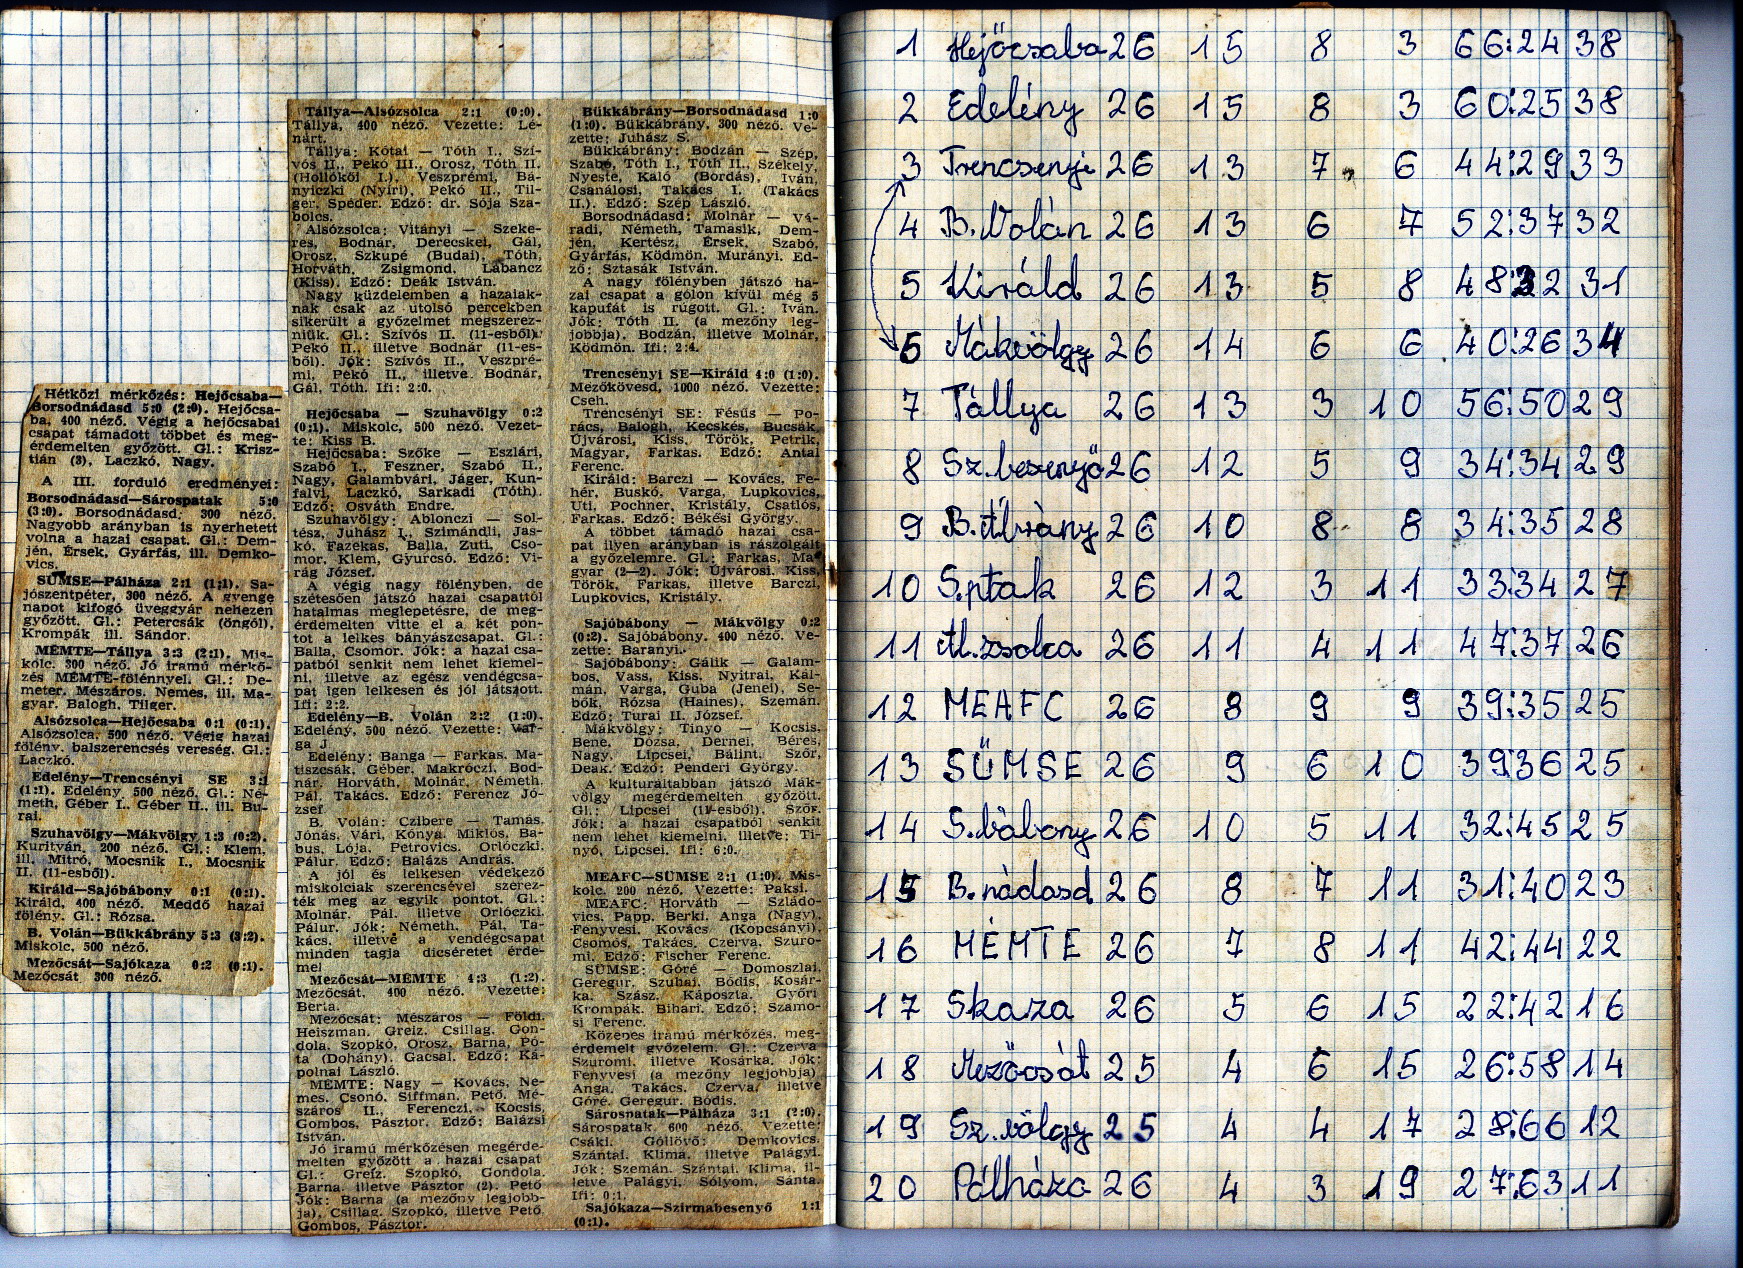 Hétközi mérkőzés: Hejőcsaba—
Borsodnádasd 5:0 (2:0). Hejőcsa-
ba, 400 néző. Végig a hejőcsabai
csapat támadott többet és meg-
érdemelten győzött. Gl.: Krisz-
tián (3), Laczkó, Nagy.
A III. forduló eredményei:
Borsodnádasd—Sárospatak 5:0
(3:0). Borsodnádasd, 300 néző.
Nagyobb arányban is nyerhetett
volna a hazai csapat. Gl.: Dem-
jén, Érsek, Gyárfás, ill. Demko-
vics.
SÜMSE—Pálháza 2:1 (1:1). Sa-
jószentpéter, 300 néző. A gyenge
napot kifogó üveggyár nehezen
győzött. Gl.: Petercsák (öngól),
Krompák ill. Sándor.
MÉMTE—Tállya 3:3 (2:1). Mis-
kolc, 300 néző. Jó iramú mérkő-
zés MÉMTE-fölénnyel. Gl.: De-
meter, Mészáros, Nemes, ill. Ma-
gyar, Balogh, Tilger.
Alsózsolca—Hejőcsaba 0:1 (0:1).
Alsózsolca, 500 néző. Végig hazai
fölény, balszerencsés vereség. Gl.:
Laczkó.
Edelény—Trencsényi SE 3:1
(1:1). Edelény, 500 néző. Gl.: Né-
meth, Géber I., Géber II., ill. Bu-
rai.
Szuhavölgy—Mákvölgy 1:3 (0:2).
Kurityán, 200 néző. Gl.: Klem,
ill. Mitró, Mocsnik I., Mocsnik
II. (11-esből).
Királd—Sajóbábony 0:1 (0:1).
Királd, 400 néző. Meddő hazai
fölény. Gl.: Rózsa.
B. Volán—Bükkábrány 5:3 (3:2).
Miskolc, 500 néző.
Mezőcsát—Sajókaza 0:2 (0:1).
Mezőcsát 300 néző.
Tállya—Alsózsolca 2:1 (0:0).
Tállya, 400 néző. Vezette: Lé-
nárt.
Tállya: Kótai — Tóth I., Szí-
vós II., Pekó III., Orosz, Tóth II.
(Hollókői I.), Veszprémi, Bá-
nyiczki (Nyíri), Pekó II., Til-
ger, Spéder. Edző: dr. Sója Sza-
bolcs.
Alsózsolca: Vitányi — Szeke-
res, Bodnár, Derecskei, Gál,
Orosz, Szkupé (Budai), Tóth,
Horváth, Zsigmond, Lábancz
(Kiss). Edző: Deák István.
Nagy küzdelemben a hazaiak-
nak csak az utolsó percekben
sikerült a győzelmet megszerez-
niük. Gl.: Szívós II. (11-esből),
Pekó II., illetve Bodnár (11-es-
ből). Jók: Szívós II., Veszpré-
mi, Pekó II., illetve Bodnár,
Gál, Tóth. Ifi: 2:0.
Hejőcsaba — Szuhavölgy 0:2
(0:1). Miskolc, 500 néző. Vezet-
te: Kiss B.
Hejőcsaba: Szőke — Eszlári,
Szabó I., Feszner, Szabó II.,
Nagy, Galambvári, Jáger, Kun-
falvi, Laczkó, Sarkadi (Tóth).
Edző: Osváth Endre.
Szuhavölgy: Ablonczi — Sol-
tész, Juhász I., Szimándli, Jas-
kó, Fazekas, Balla, Zuti, Cso-
mor, Klem, Gyurcsó. Edző: Vi-
rág József.
A végig nagy fölényben, de
szétesően játszó hazai csapattól
hatalmas meglepetésre, de meg-
érdemelten vitte el a két pon-
tot a lelkes bányászcsapat. Gl.:
Balla, Csomor. Jók: a hazai csa-
patból senkit nem lehet kiemel-
ni, illetve az egész vendégcsa-
pat igen lelkesen és jól játszott.
Ifi: 2:2.
Edelény—B. Volán 2:2 (1:0).
Edelény, 500 néző. Vezette: Var-
ga J
Edelény: Banga — Farkas, Ma-
tiszcsák, Géber, Makróczi, Bod-
nár, Horváth, Molnár, Németh,
Pál, Takács. Edző: Ferencz Jó-
zsef.
B. Volán: Czibere — Tamás,
Jónás, Vári, Kónya, Miklós, Ba-
bus, Lója, Petrovics, Orlóczki,
Pálur. Edző: Balázs András.
A jól és lelkesen védekező
miskolciak szerencsével szerez-
ték meg az egyik pontot. Gl.:
Molnár, Pál, illetve Orlóczki,
Pálur. Jók: Németh, Pál, Ta-
kács, illetve a vendégcsapat
minden tagja dicséretet érde-
mel
Mezőcsát—MÉMTE 4:3 (1:2).
Mezőcsát, 400 néző. Vezette:
Berta.
Mezőcsát: Mészáros — Földi,
Heiszman, Greiz, Csillag, Gon-
dola, Szopkó, Orosz, Barna, Pó-
ta (Dohány), Gacsal. Edző: Ká-
polnai László.
MÉMTE: Nagy — Kovács, Ne-
mes, Csonó, Siffman, Pető, Mé-
száros II., Ferenczi, Kocsis,
Gombos, Pásztor. Edző: Balázsi
István.
Jó iramú mérkőzésen megérde-
melten győzött a hazai csapat
Gl.: Greiz, Szopkó, Gondola,
Barna, illetve Pásztor (2), Pető
Jók: Barna (a mezőny legjobb-
ja), Csillag, Szopkó, illetve Pető,
Gombos, Pásztor.
Bükkábrány—Borsodnádasd 1:0
(1:0). Bükkábrány, 300 néző. Ve-
zette: Juhász S.
Bükkábrány: Bodzán — Szép,
Szabó, Tóth I., Tóth II., Székely,
Nyeste, Kaló (Bordás), Iván,
Csanálosi, Takács I. (Takács
II.). Edző: Szép László.
Borsodnádasd: Molnár — Vá-
radi, Németh, Tamasik, Dem-
jén, Kertész, Érsek, Szabó,
Gyárfás, Ködmön, Murányi. Ed-
ző: Sztasák István.
A nagy fölényben játszó ha-
zai csapat a gólon kívül még 5
kapufát is rúgott. Gl.: Iván.
Jók: Tóth II. (a mezőny leg-
jobbja), Bodzán, illetve Molnár,
Ködmön. Ifi: 2:4.
Trencsényi SE—Királd 4:0 (1:0).
Mezőkövesd, 1000 néző. Vezette:
Cseh.
Trencsényi SE: Fésüs — Po-
rács, Balogh, Kecskés, Bucsák,
Újvárosi, Kiss, Török, Petrik,
Magyar, Farkas. Edző: Antal
Ferenc.
Királd: Barczi — Kovács, Fe-
hér, Buskó, Varga, Lupkovics,
Uti, Pochner, Kristály, Csatlós,
Farkas. Edző: Békési György.
A többet támadó hazai csa-
pat ilyen arányban is rászolgált
a győzelemre. Gl.: Farkas, Ma-
gyar (2—2). Jók: Újvárosi, Kiss,
Török, Farkas, illetve Barczi,
Lupkovics, Kristály.
Sajóbábony — Mákvölgy 0:2
(0:2). Sajóbábony, 400 néző. Ve-
zette: Baranyi.
Sajóbábony: Gálik — Galam-
bos, Vass, Kiss, Nyitrai, Kál-
mán, Varga, Guba (Jenei), Se-
bők, Rózsa (Hajnes), Szemán.
Edző: Turai II. József.
Mákvölgy: Tinyó — Kocsis,
Bene, Dózsa, Dernei, Béres,
Nagy, Lipcsei, Bálint, Szőr,
Deák. Edző: Penderi György.
A kulturáltabban játszó Mák-
völgy megérdemelten győzött.
Gl.: Lipcsei (11-esből), Szőr.
Jók: a hazai csapatból senkit
nem lehet kiemelni, illetve: Ti-
nyó, Lipcsei. Ifi: 6:0.
MEAFC—SÜMSE 2:1 (1:0). Mis-
kolc, 200 néző. Vezette: Paksi.
MEAFC: Horváth — Szládo-
vics, Papp, Berki, Anga (Nagy),
Fenyvesi, Kovács (Kopcsányi),
Csomós, Takács, Czerva, Szuro-
mi. Edző: Fischer Ferenc.
SÜMSE: Góré — Domoszlai,
Geregur, Szuhai, Bódis, Kosár-
ka, Szász, Káposzta, Győri
Krompák, Bihari. Edző: Szamo-
si Ferenc.
Közepes iramú mérkőzés, meg-
érdemelt győzelem. Gl.: Czerva
Szuromi, illetve Kosárka. Jók:
Fenyvesi (a mezőny legjobbja),
Anga, Takács, Czerva, illetve
Góré, Geregur, Bódis.
Sárospatak—Pálháza 3:1 (2:0).
Sárospatak, 600 néző. Vezette:
Csáki. Góllövő: Demkovics,
Szántai, Klima, illetve Palágyi.
Jók: Szemán, Szántai, Klima, il-
letve Palágyi, Sólyom, Sánta.
Ifi: 0:1.
Sajókaza—Szirmabesenyő 1:1
(0:1).
1 Hejőcsaba 26 15 8 3 66:24 38
2 Edelény 26 15 8 3 60:25 38
3 Trencsenyi 26 13 7 6 44:29 33
4 B.Volán 26 13 6 7 52:37 32
5 Királd 26 13 5 8 48:32 31
6 Mákvölgy 26 14 6 6 40:26 34
7 Tállya 26 13 3 10 56:50 29
8 Sz.besenyő 26 12 5 9 34:34 29
9 B.ábrány 26 10 8 8 34:35 28
10 S.ptak 26 12 3 11 33:34 27
11 Al.zsolca 26 11 4 11 47:37 26
12 MEAFC 26 8 9 9 39:35 25
13 SÜMSE 26 9 6 10 39:36 25
14 S.bábony 26 10 5 11 32:45 25
15 B.nádasd 26 8 7 11 31:40 23
16 MÉMTE 26 7 8 11 42:44 22
17 Skaza 26 5 6 15 22:42 16
18 Mezőcsát 25 4 6 15 26:58 14
19 Sz.völgy 25 4 4 17 28:66 12
20 Pálháza 26 4 3 19 27:63 11